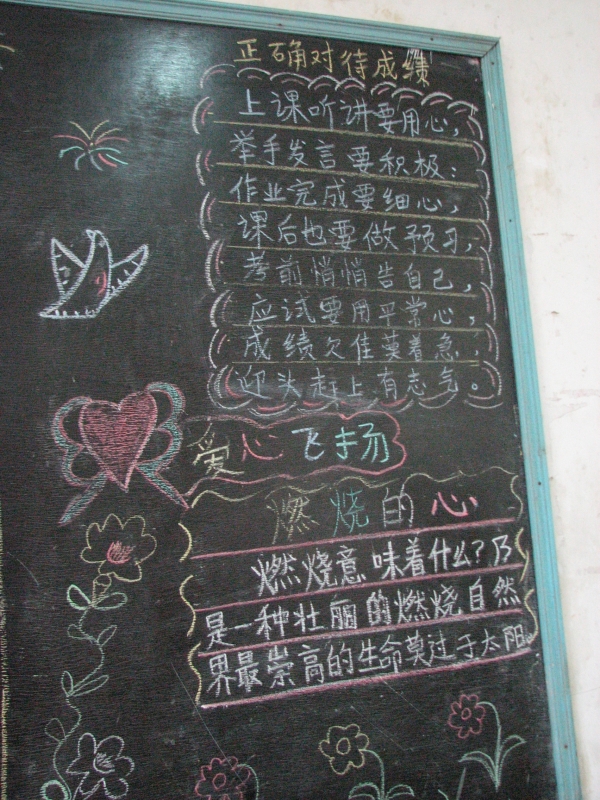 正确对待成绩
上课听讲要用心,
举手发言要积极:
作业完成要细心,
课后也要做预习,
考前悄悄告自己,
应试要用平常心,
成绩欠佳莫着急,
迎头赶上有志气。
爱心飞扬
燃烧的心
燃烧意味着什么?乃
是一种壮丽的燃烧自然
界最崇高的生命莫过于太阳。